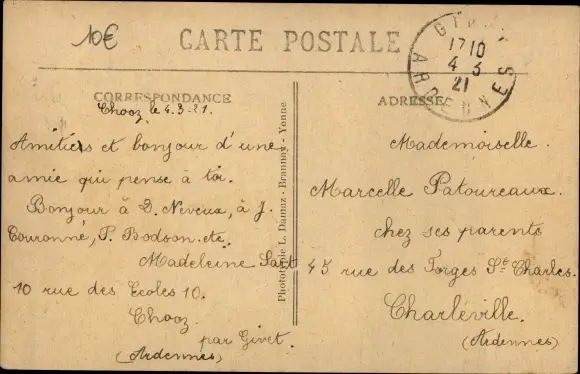 10€
CARTE POSTALE
GIVET
17 10
4 3
21
ARDENNES
CORRESPONDANCE
Chooz le 4.3.21.
Amitiés et bonjour d'une
amie qui pense à toi.
Bonjour à D. Neveux, à J.
Couronné, P. Bodson. etc.
Madeleine
10 rue des Ecoles 10.
Chooz.
par Givet.
(Ardennes)
Phototypie L. Damaz - Brannay - Yonne
ADRESSE
Mademoiselle.
Marcelle Patoureaux.
chez ses parents
45 rue des Forges St Charles.
Charleville.
(Ardennes)